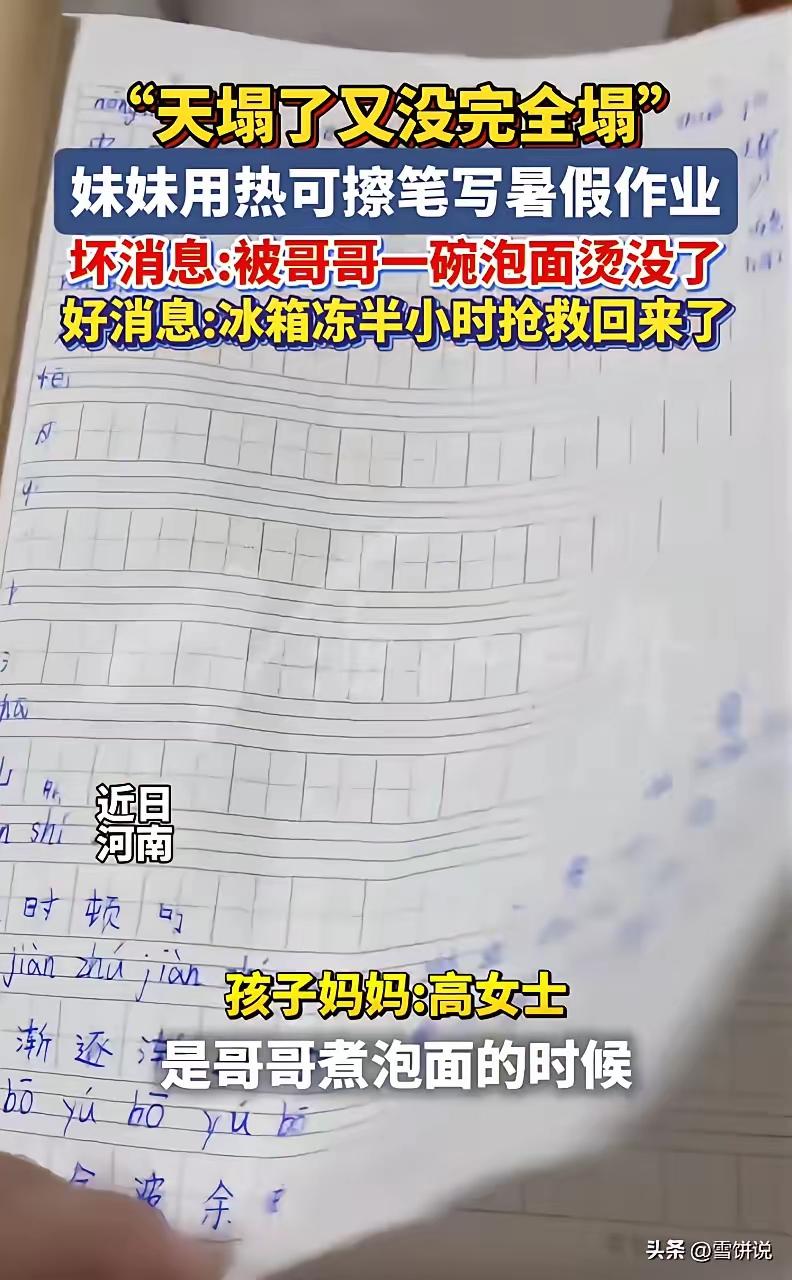 “天塌了又没完全塌”
妹妹用热可擦笔写暑假作业
坏消息:被哥哥一碗泡面烫没了
好消息:冰箱冻半小时抢救回来了
近日
河南
shí
时 顿
jiàn zhú jiàn
渐 逐
bō yú bō yú bō
孩子妈妈:高女士
是哥哥煮泡面的时候
波 余
头条 @雪饼说